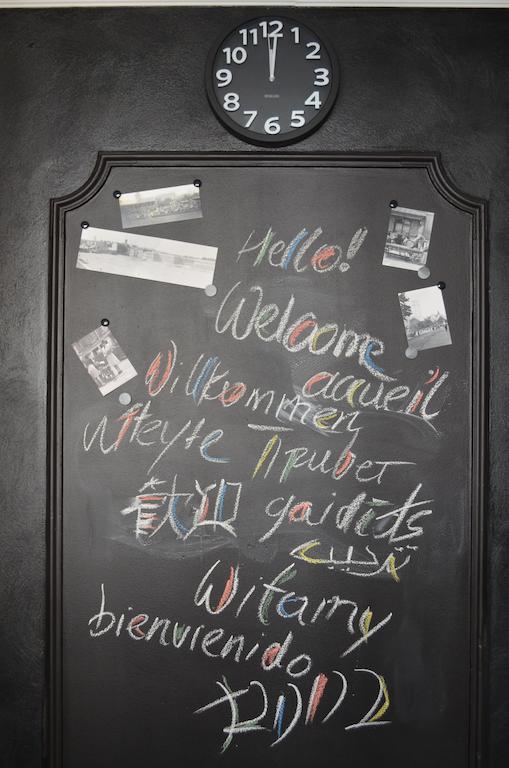 11 12 1
10 2
9 3
8 4
7 6 5
Hello!
Welcome
accueil
Willkommen
witeyte Привет
歓迎 gaidīts
ترحيب
Witamy
bienvienido